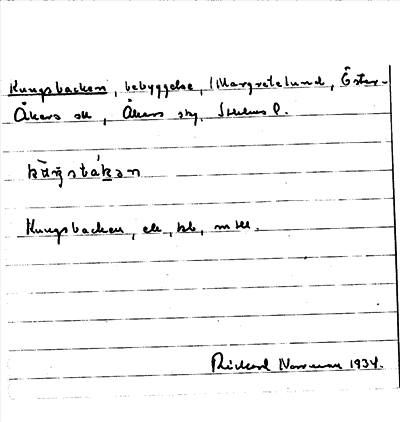 Kungsbacken, bebyggelse, Margretelund, Öster-
Åkers sn, Åkers skg, Sthlms l.
Kungsbacken, ek, kb,
Rickard Norrman 1934.